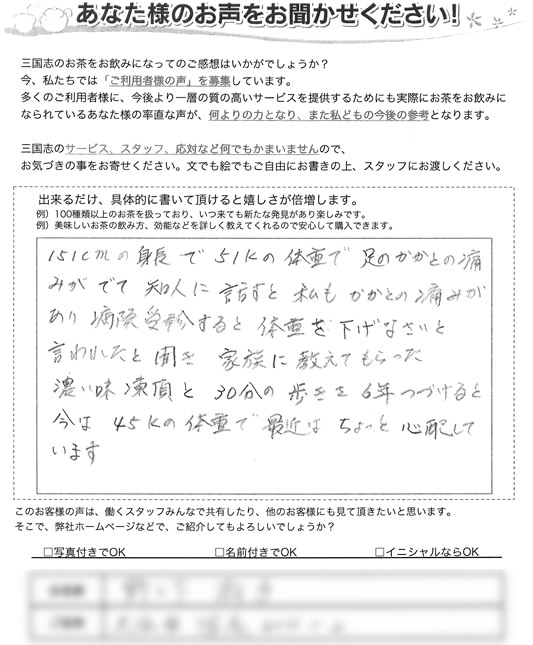 あなた様のお声をお聞かせください!
三国志のお茶をお飲みになってのご感想はいかがでしょうか?
今、私たちでは「ご利用者様の声」を募集しています。
多くのご利用者様に、今後より一層の質の高いサービスを提供するためにも実際にお茶をお飲みに
なられているあなた様の率直な声が、何よりの力となり、また私どもの今後の参考となります。
三国志のサービス、スタッフ、応対など何でもかまいませんので、
お気づきの事をお寄せください。文でも絵でもご自由にお書きの上、スタッフにお渡しください。
出来るだけ、具体的に書いて頂けると嬉しさが倍増します。
例）100種類以上のお茶を扱っており、いつ来ても新たな発見があり楽しみです。
例）美味しいお茶の飲み方、効能などを詳しく教えてくれるので安心して購入できます。
151cmの身長で51Kの体重で足のかかとの痛
みがでて知人に話すと私もかかとの痛みが
あり病院受診すると体重を下げなさいと
言われたと聞き家族に教えてもらった
濃い味凍頂と30分の歩きを6年つづけると
今は45Kの体重で最近はちょっと心配して
います
このお客様の声は、働くスタッフみんなで共有したり、他のお客様にも見て頂きたいと思います。
そこで、弊社ホームページなどで、ご紹介してもよろしいでしょうか?
□写真付きでOK □名前付きでOK □イニシャルならOK